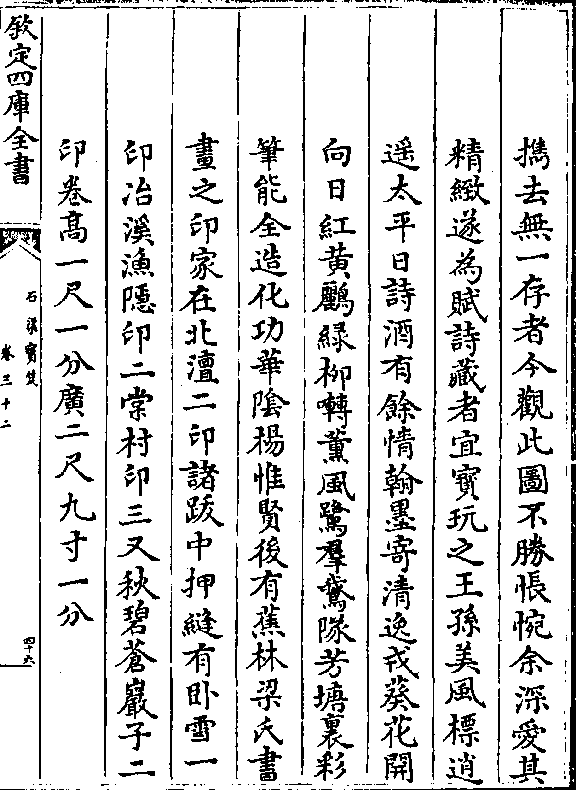 攜去無一存者今觀此圖不勝悵惋余深愛其
精緻遂為賦詩藏者宜寶玩之王孫美風標逍
遥太平日詩酒有餘情翰墨寄清逸戎葵花開
向日紅黄鸝緑柳囀薰風鷺羣鶩隊芳塘裏彩
筆能全造化功華隂楊惟賢後有蕉林梁氏書
畫之印家在北澶二印諸跋中押縫有卧雪一
印冶溪漁隱印二棠村印三又秋碧蒼巖子二
印卷髙一尺一分廣二尺九寸一分
欽定四庫全書
石渠寶笈
卷三十二
四十六